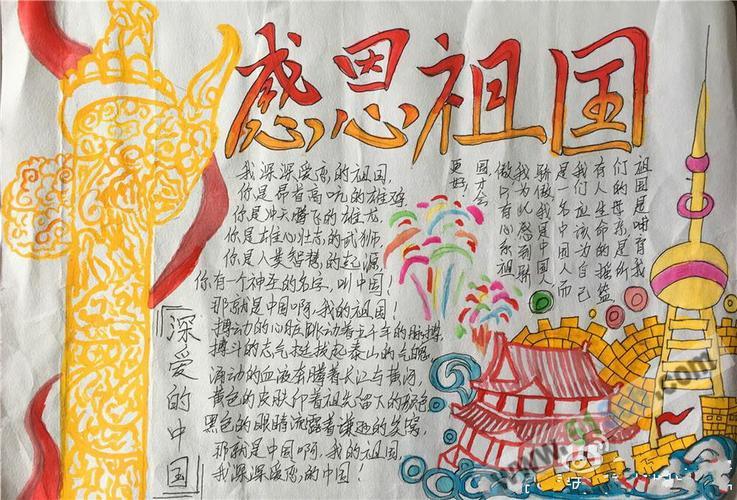 感恩祖国
我深深爱恋的祖国,
你是昂首高吭的雄鸡
你是冲天腾飞的雄龙
你是雄心壮志的武狮
你是人类智慧的起源,
你有一个神圣的名字,叫中国!
那就是中国啊,我的祖国!
搏动的心脏跳动着五千年的脉搏,
搏斗的志气挺拔起泰山的气魄,
涌动的血液奔腾着长江与黄河,
黄色的皮肤印着祖先留下的颜色
黑色的眼睛流露着谦逊的笑窝,
那就是中国啊,我的祖国,
我深深爱恋的中国!
深爱的中国
祖国是哺育我
们的母亲,是所
有人生命的摇篮
我们应该为自己
是一名中国人而
骄傲,我是中国人
我为此感到骄
傲,只有心系祖
国才会
更好!